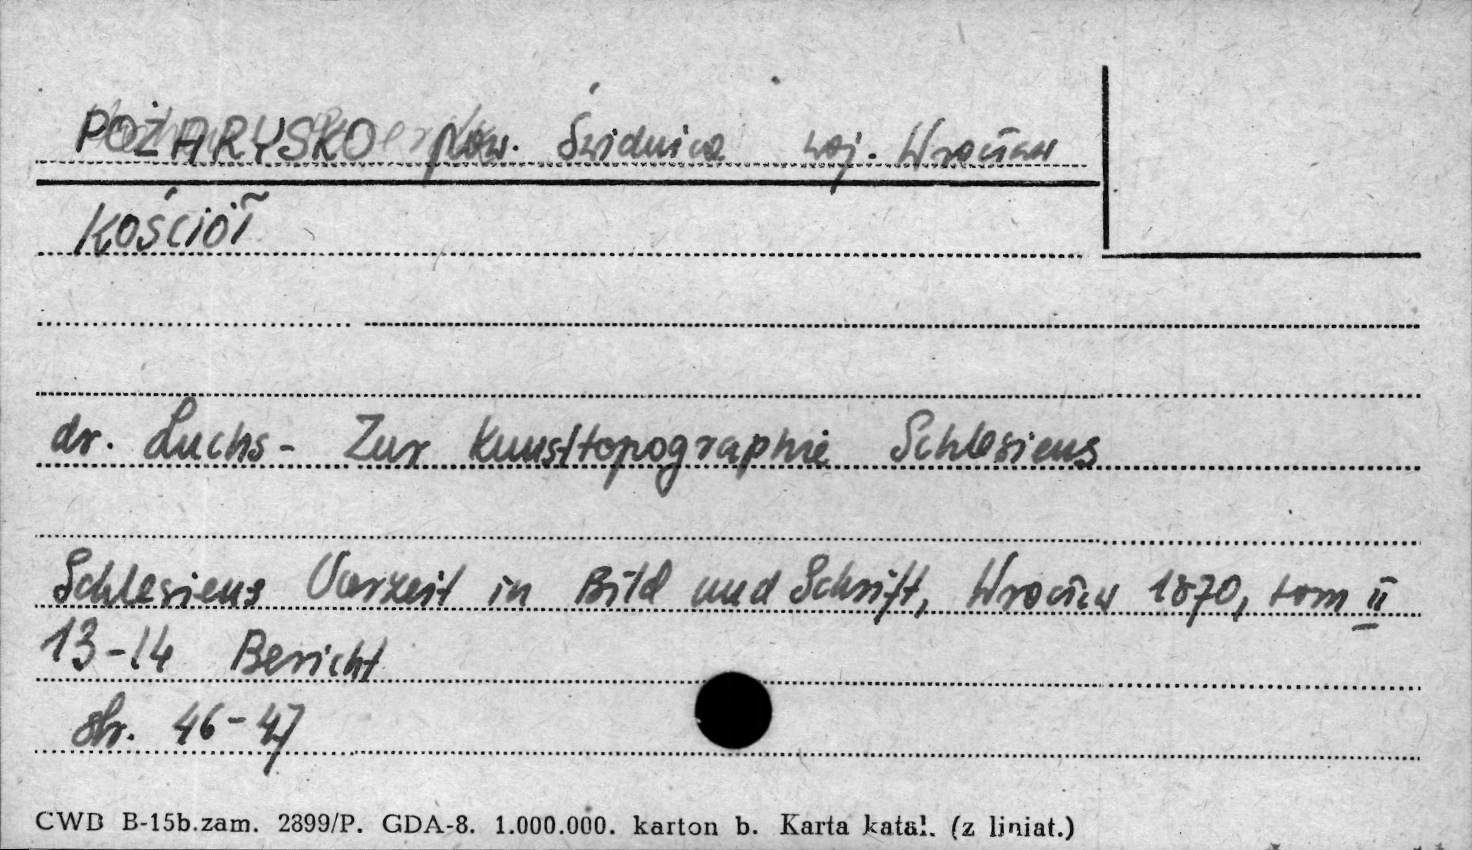 POŻARYSKO pow. Świdnica woj. Wrocław
Kościół
dr. Luchs - Zur Kunsttopographie Schlesiens
Schlesiens Vorzeit in Bild und Schrift, Wrocław 1870, tom II
13-14 Bericht
str. 46-47
CWD B-15b.zam. 2899/P. GDA-8. 1.000.000. karton b. Karta katal. (z liniat.)